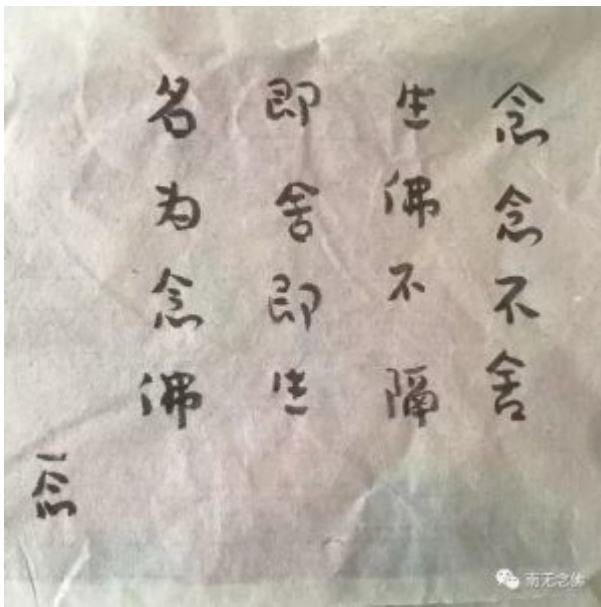 念念不舍
生佛不隔
即舍即生
名为念佛
一念
南无念佛